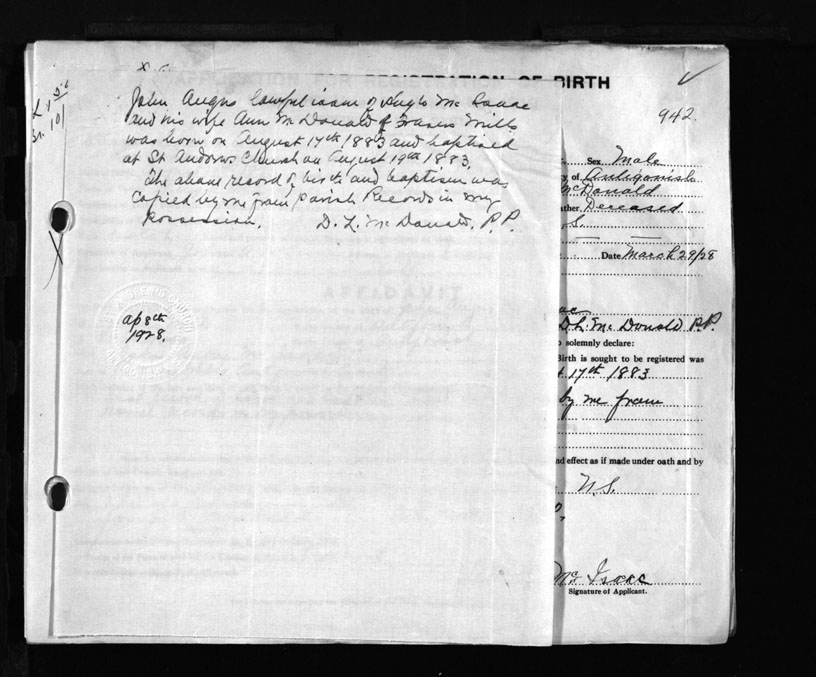 APPLICATION FOR REGISTRATION OF BIRTH
942.
John Angus lawful issue of Anglo McIsaac
and his wife Ann McDonald of Frasers Mills
was born on August 17th 1883 and baptised
at St Andrews Church on August 19th 1883.
The above record of birth and baptism was
copied by me from Parish Records in my
possession. D. L. McDonald, P.P.
Ap 8th
1928.
Sex Male
y of Antigonish
McDonald
ather Deceased
S.
Date March 29/28
AFFIDAVIT
D.L. McDonald P.P.
o solemnly declare:
Birth is sought to be registered was
17th 1883
by me from
nd effect as if made under oath and by
N.S.
Mc Isaac
Signature of Applicant.